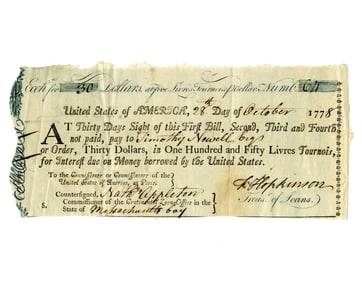 Exch. for 30 Dollars, at five Livres Tournois ℔ Dollar. Numb.
United States of AMERICA, 28th Day of October 1778
AT Thirty Days Sight of this First Bill, Second, Third and Fourth
not paid, pay to Timothy Newell
or Order, Thirty Dollars, in One Hundred and Fifty Livres Tournois,
for Interest due on Money borrowed by the United States.
To the Commissioner or Commissioners of the
United States of America, at Paris.
Countersigned, Nath Appleton
Commissioner of the Continental Loan-Office in the
State of Massachusetts bay
F Hopkinson
Treas. of Loans.